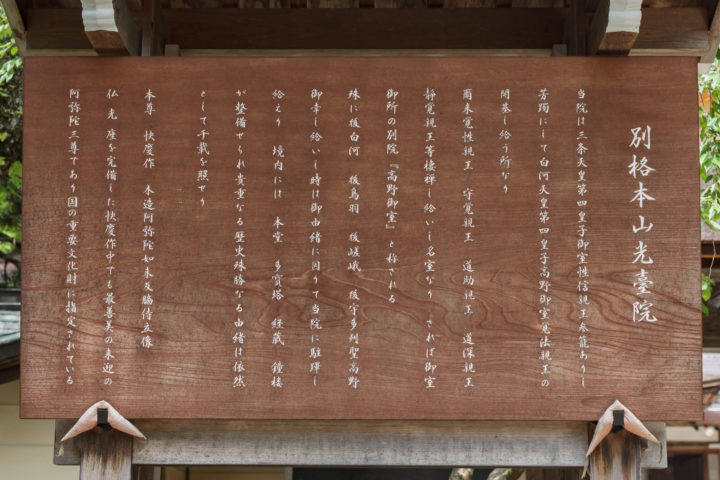 別格本山光臺院
当院は三条天皇第四皇子御室性信親王参籠ありし
芳躅にして白河天皇第四皇子高野御室覚法親王の
開基し給う所なり
爾来覚性親王 守覚親王 道助親王 道深親王
静覚親王等棲禅し給いし名室なり されば御室
御所の別院『高野御室』と称される
殊に後白河 後鳥羽 後嵯峨 後宇多列聖高野
御幸し給いし時は御由緒に因りて当院に駐蹕し
給えり 境内には 本堂 多寶塔 経蔵 鐘楼
が整備せられ貴重なる歴史殊勝なる由緒は依然
として千載を照せり
本尊 快慶作 木造阿弥陀如来及脇侍立像
仏光座を完備した快慶作中でも最善美の来迎の
阿弥陀三尊であり国の重要文化財に指定されている